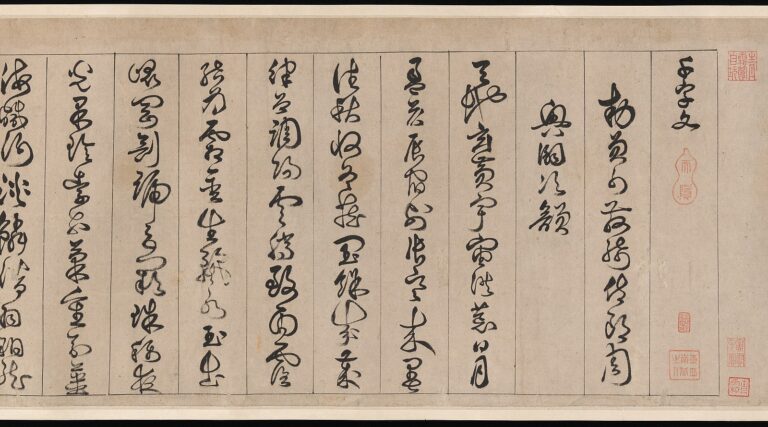 千字文
勅員外散騎侍郎周
興嗣次韻
天地玄黃宇宙洪荒日月
盈昃辰宿列張寒来暑
往秋收冬藏閏餘成歲
律呂調陽雲騰致雨露
結為霜金生麗水玉出
崑岡劍號巨闕珠稱夜
光果珍李柰菜重芥薑
海鹹河淡鱗潛羽翔龍